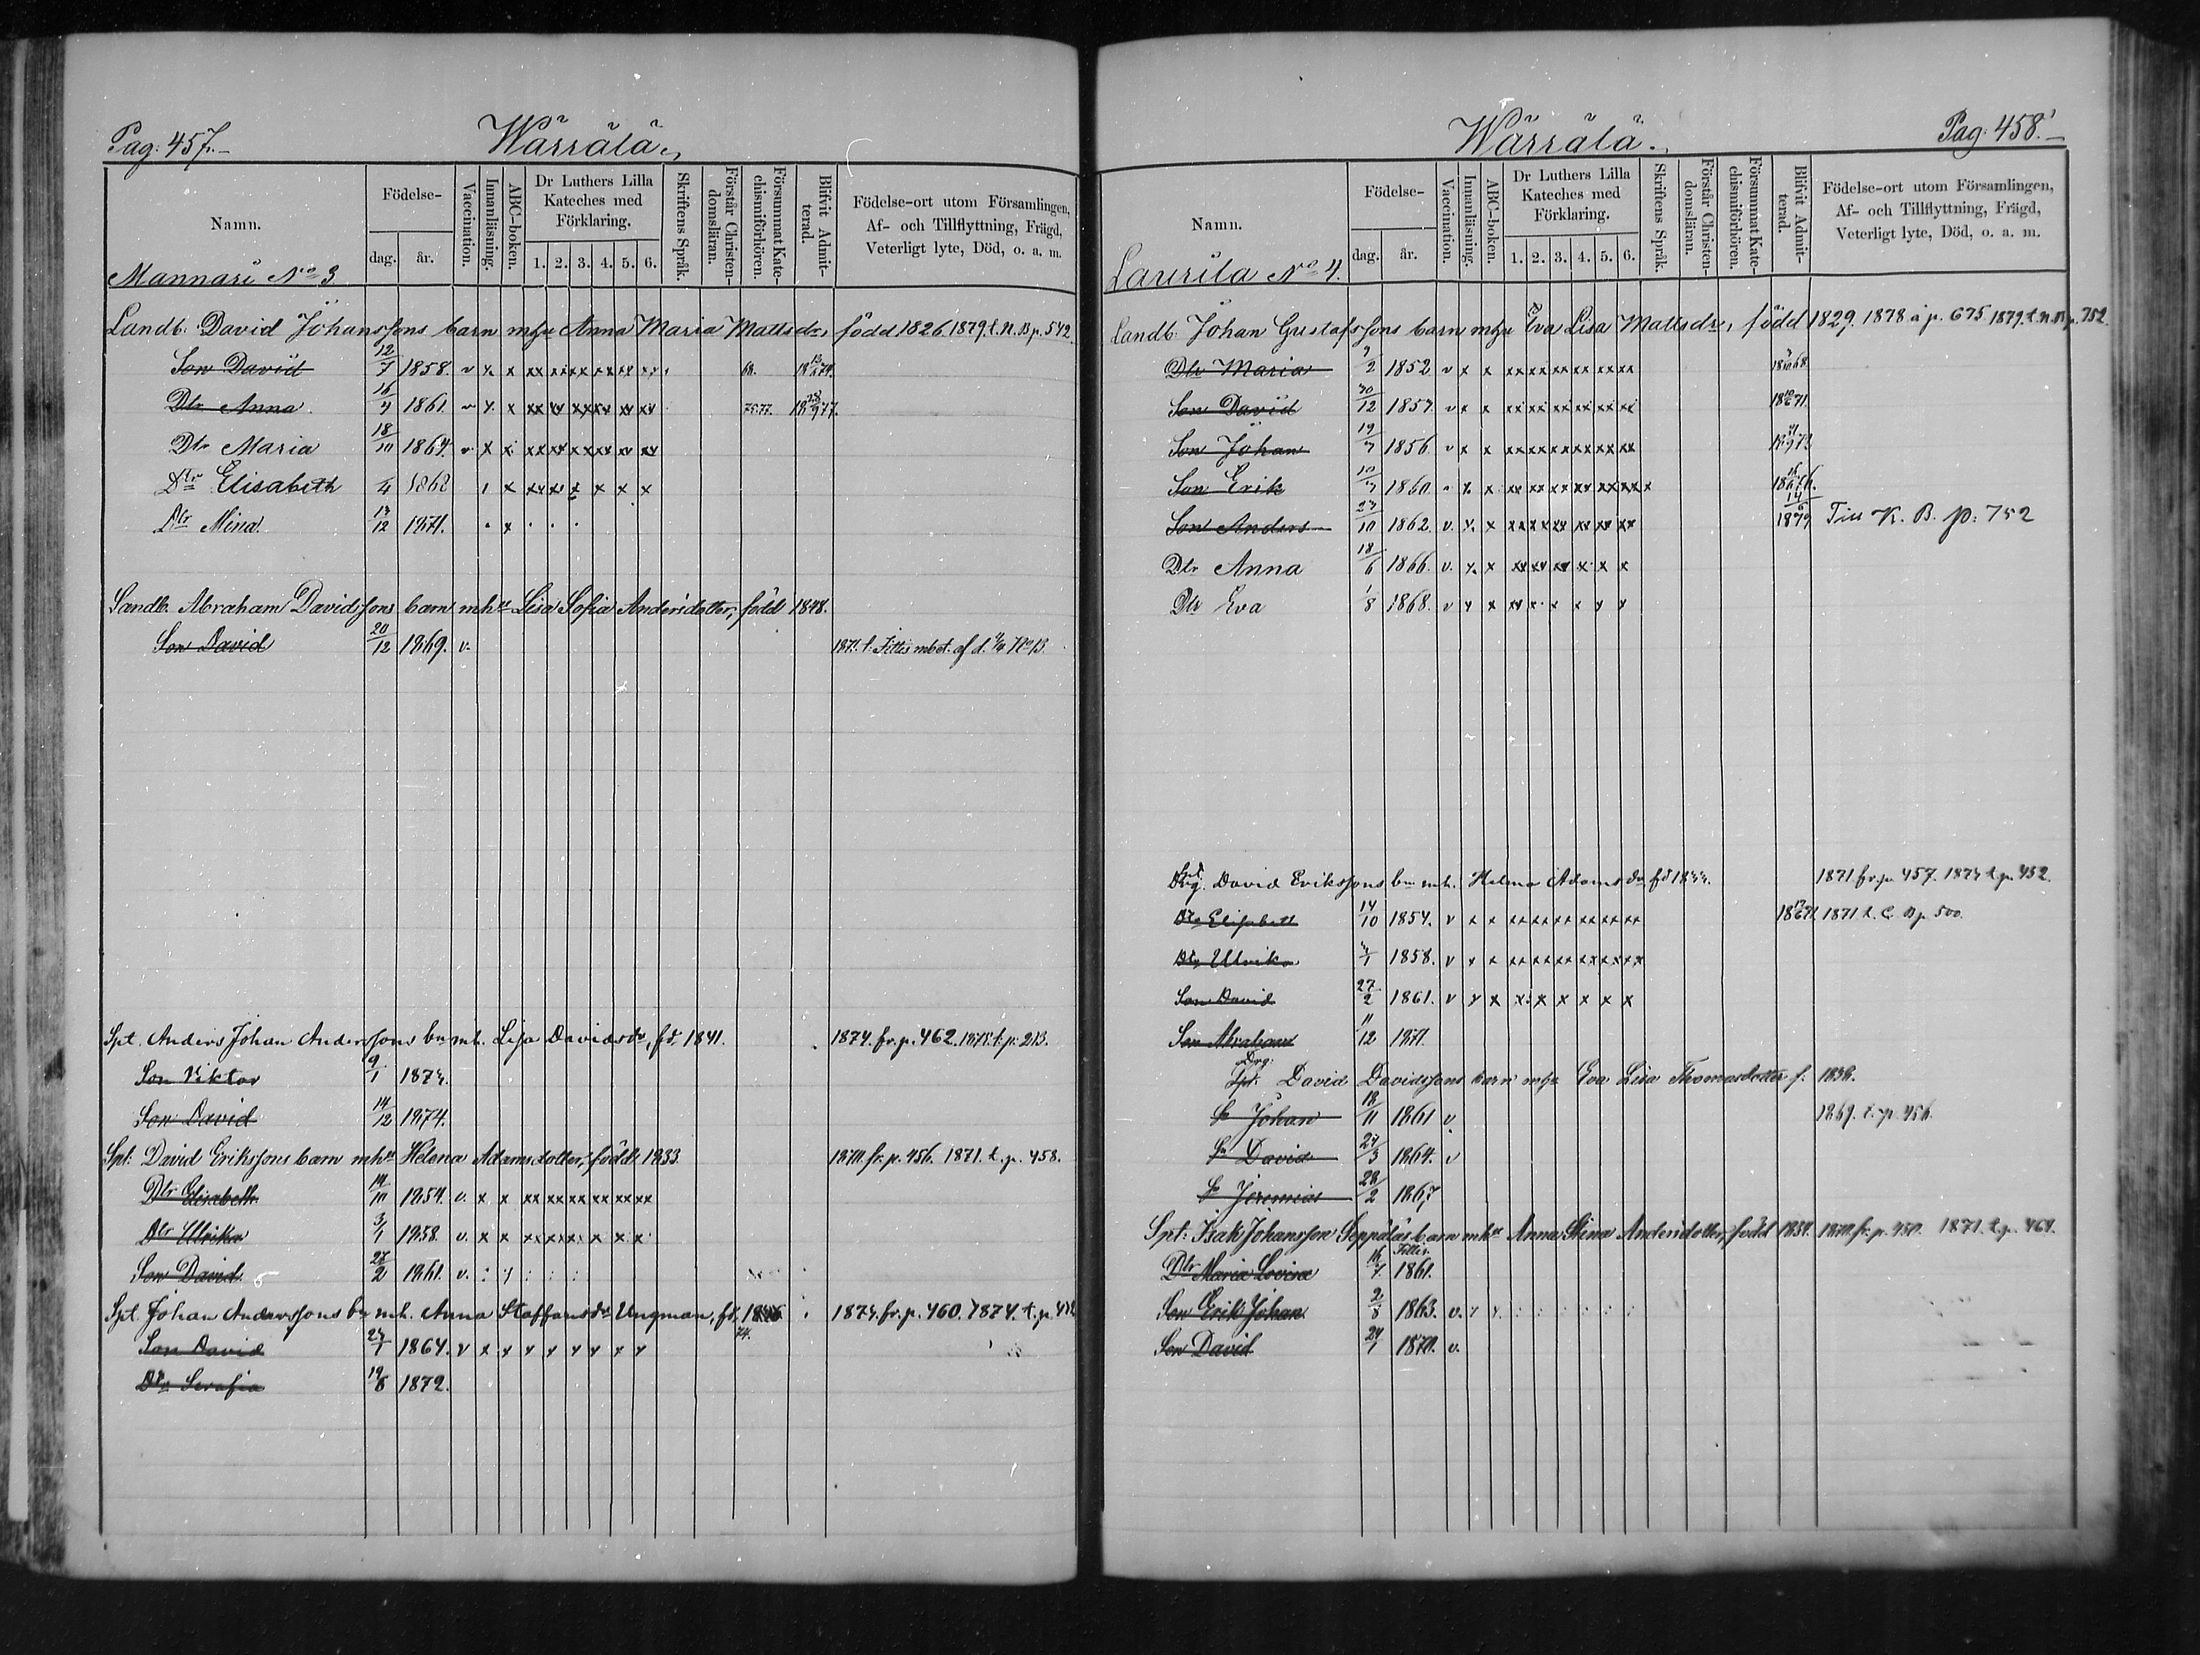 Pag: 457.
Wärrälä.
Namn.
Födelse-
dag.
år.
Vaccination.
Innanläsning.
ABC-boken.
Dr Luthers Lilla Kateches med Förklaring.
1. 2. 3. 4. 5. 6.
Skriftens Språk.
Förstår Christen-domsläran.
Försummat Kate-chismiförhören.
Blifvit Admit-terad.
Födelse-ort utom Församlingen,
Af- och Tillflyttning, Frägd,
Veterligt lyte, Död, o. a. m.
Mannari No 3
Landb. David Johanssons barn m hu Anna Maria Mattsdr, född 1826. 1879. t. N. B p. 542.
Son David 12/7 1858. v x x xx xx xx xx xx xx
Dtr Anna 16/4 1861. v x x xx xx xx xx xx xx 75.77.
Dtr Maria 18/10 1864. v x x xx xx xx xx xx xx
Dtr Elisabeth 1868 x xx x x x x x
Dtr Mina 13/12 1871. x
Landb. Abraham Davidssons barn m hu Lisa Sofia Andersdotter, född 1848.
Son David 20/12 1869. v. 1871. t. Tittis
Spt. Anders Johan Anderssons bn m h. Lisa Davidsdr, fd. 1841. 1874. fr. p. 462. 1878. t. p. 213.
Son Viktor 9/1 1873.
Son David 14/12 1874.
Spt: David Erikssons barn m hu Helena Adamsdotter, född 1833. 1870. fr. p. 456. 1871. t. p. 458.
Dtr Elisabeth 14/10 1854. v. x x xx xx xx xx xx xx
Dtr Ulrika 3/1 1858. v. x x xx xx x x x x
Son David 27/2 1861. v.
Spt. Johan Anderssons bn m h. Anna Staffansdr Ungman, fd. 1874. fr. p. 460. 1874. t. p.
74.
Son David 27/1 1864. v x x x x x x x x
Dtr Serafia 19/8 1872.
Pag: 458.
Wärrälä.
Namn.
Födelse-
dag.
år.
Vaccination.
Innanläsning.
ABC-boken.
Dr Luthers Lilla Kateches med Förklaring.
1. 2. 3. 4. 5. 6.
Skriftens Språk.
Förstår Christen-domsläran.
Försummat Kate-chismiförhören.
Blifvit Admit-terad.
Födelse-ort utom Församlingen,
Af- och Tillflyttning, Frägd,
Veterligt lyte, Död, o. a. m.
Laurila No 4.
Landb. Johan Gustafssons barn m hu Eva Lisa Mattsdr, född 1829. 1878 å p. 675. 1879. t. N. B. p. 752.
Dtr Maria 9/2 1852 v x x xx xx xx xx xx xx
Son David 30/12 1857. v x x xx xx xx xx xx xx
Son Johan 19/7 1856. v x x xx xx xx xx xx xx
Son Erik 10/7 1860. x x xx xx xx xx xx xx x
Son Anders 27/10 1862. v. x x xx xx xx xx xx xx 14/6 1879 Till K. B. p: 752
Dtr Anna 18/6 1866. v. x x xx xx xx x x x
Dtr Eva 1/8 1868. v x x xx x x x x x
David Erikssons bn m h. Helena Adamsdr fd 1871 fr. p. 457. 1873 t. p. 452.
Dtr Elisabeth 14/10 1854. v x x xx xx xx xx xx xx 1871 t. C. B p. 500.
Dtr Ulrika 3/1 1858. v x x xx xx xx xx xx xx
Son David 27/2 1861. v x x x x x x x x
Son Abraham 11/12 1871.
Drg: Spt: David Davidssons barn m hu Eva Lisa Thomasdotter f. 1836.
Sn Johan 18/11 1861 v 1869. t. p. 456.
Sn David 27/3 1864. v
Sn Jeremias 28/2 1867
Spt: Isak Johansson Seppäläs barn m hu Anna Stina Andersdotter, född 1834. 1870. fr. p. 450. 1871. t. p. 464.
Tittis.
Dtr Maria Lovisa 16/7 1861.
Son Erik Johan 2/8 1863. v.
Son David 24/1 1870. v.